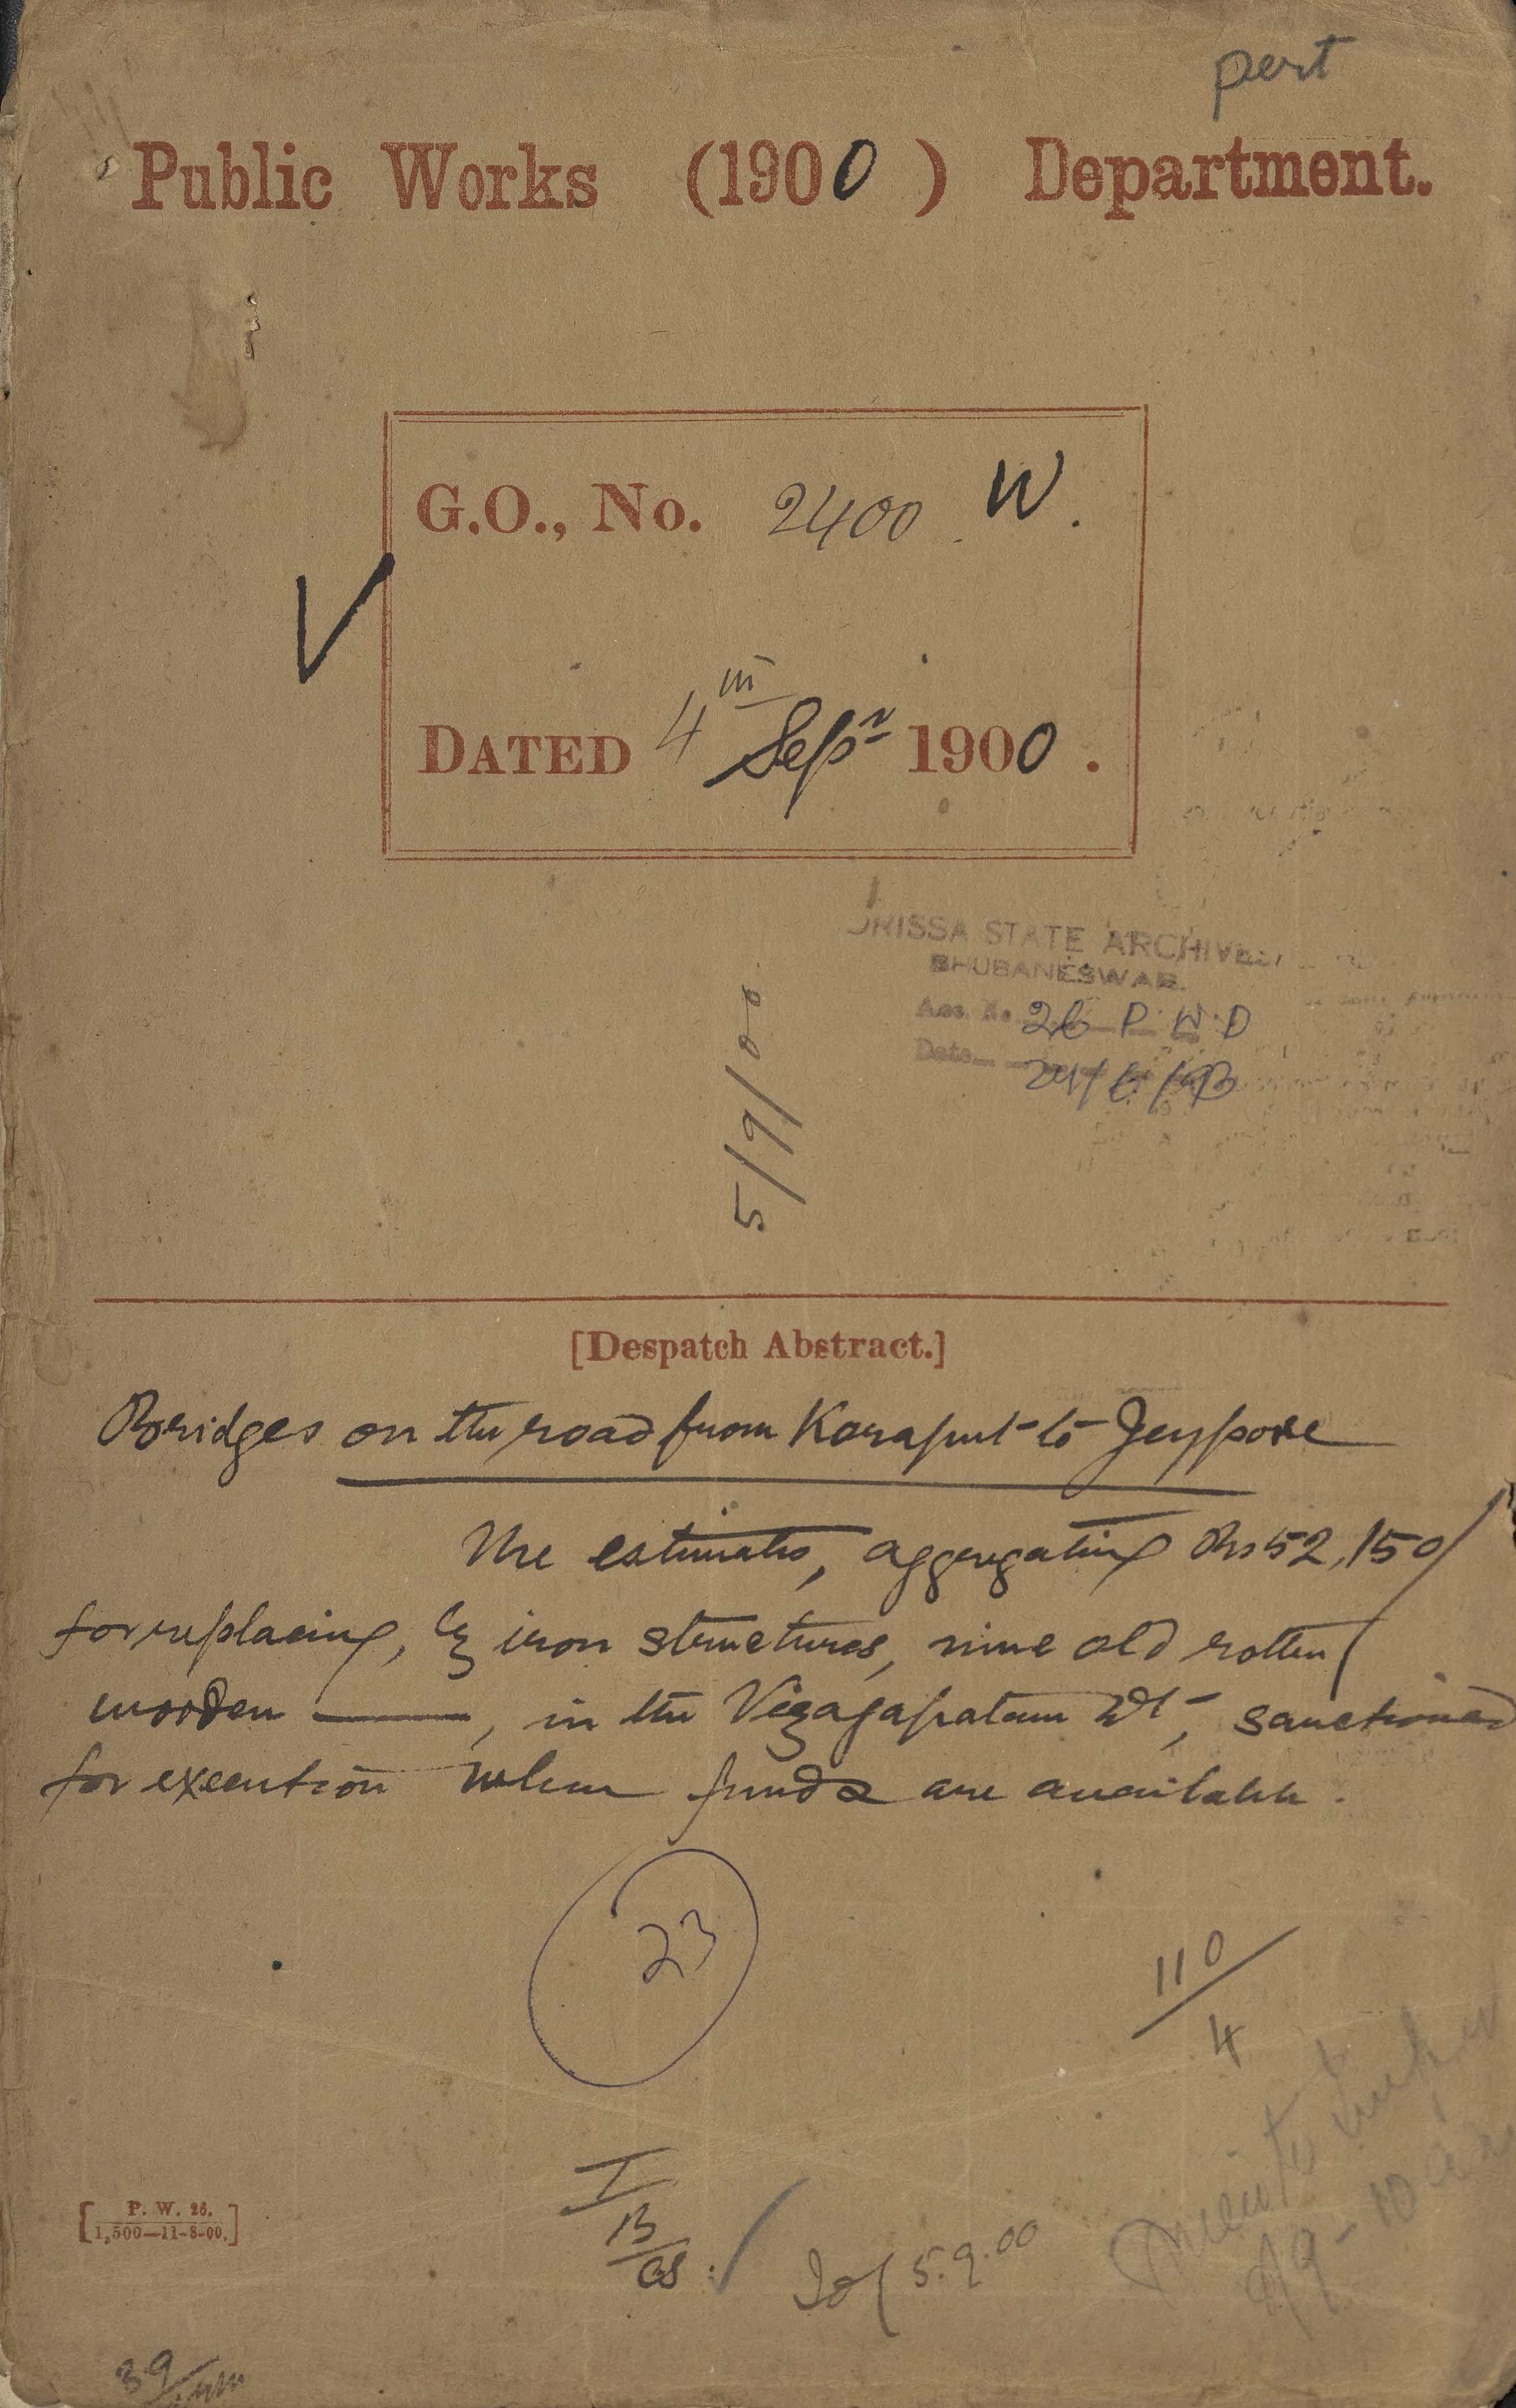 pert
Public Works (1900) Department.
G.O., No. 2400 W.
DATED 4th Sepr 1900.
ORISSA STATE ARCHIVES
BHUBANESWAR.
Acc. No. 26 P.W.D
Date
5/9/00
[Despatch Abstract.]
Bridges on the road from Koraput to Jeypore
The estimates, aggregating Rs 52,150
for replacing, by iron structures, nine old rotten
wooden ———, in the Vizagapatam Dt, sanctioned
for execution when funds are available.
23
110/4
[P. W. 26.
1,500—11-8-00.]
I
B
5.9.00
39